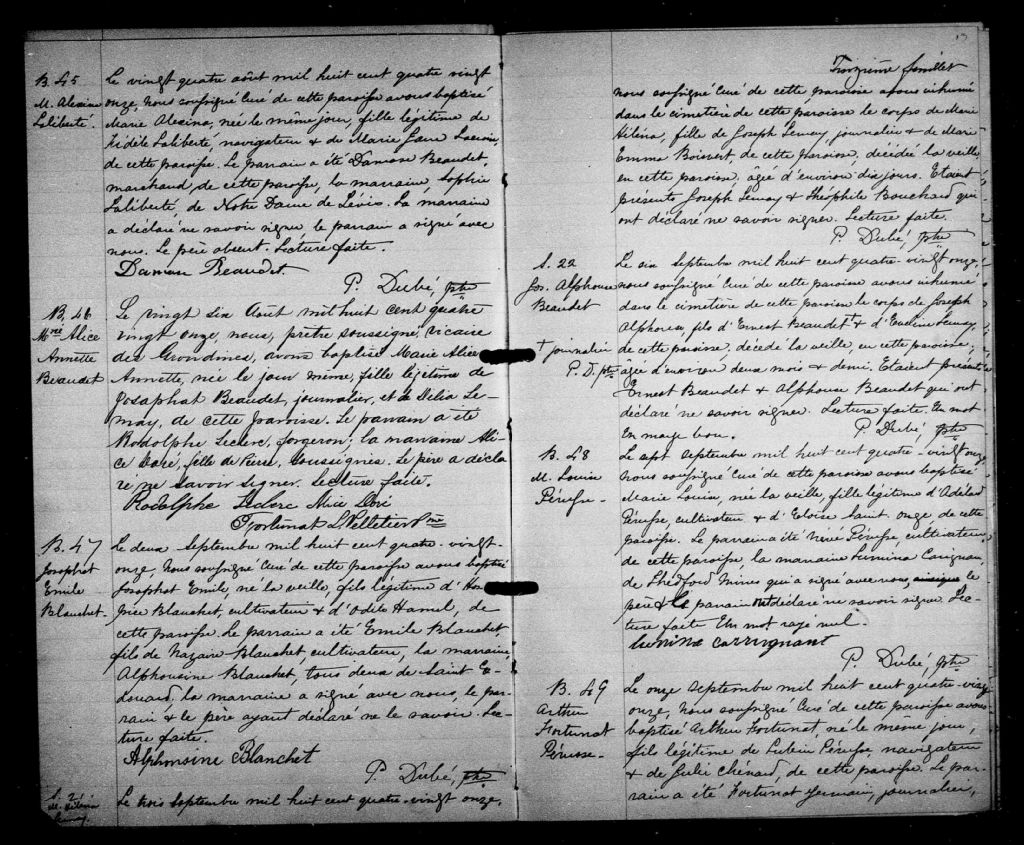 B. 45
M. Alexina
Laliberté.
Le vingt quatre août mil huit cent quatre vingt
onze, nous soussigné Curé de cette paroisse avons baptisé
Marie Alexina, née le même jour, fille légitime de
Fidèle Laliberté, navigateur & de Marie
de cette paroisse. Le parrain a été Damase Beaudet,
marchand, de cette paroisse, la marraine, Sophie
Laliberté, de Notre Dame de Lévis. La marraine
a déclaré ne savoir signer, le parrain a signé avec
nous. Le père absent. Lecture faite.
Damase Beaudet
P. Dubé, ptre
B. 46
Mie Alice
Annette
Beaudet
Le vingt six Août mil huit cent quatre
vingt onze, nous, prêtre soussigné, vicaire
des Grondines, avons baptisé Marie Alice
Annette, née le jour même, fille légitime de
Josaphat Beaudet, journalier, et de Délia Le-
may, de cette paroisse. Le parrain a été
Rodolphe Leclerc, forgeron; la marraine Ali-
ce Doré, fille de Pierre, soussignés. Le père a décla
ré ne savoir signer. Lecture faite.
Rodolphe Leclerc Alice Doré
Fortunat L. Pelletier Ptre
B. 47
Josaphat
Emile
Blanchet.
Le deux Septembre mil huit cent quatre-vingt-
onze, nous soussigné Curé de cette paroisse avons baptisé
Josaphat Emile, né la veille, fils légitime d'Ha-
Blanchet, cultivateur & d'Odile Hamel, de
cette paroisse. Le parrain a été Emile Blanchet,
fils de Nazaire Blanchet, cultivateur, la marraine,
Alphonsine Blanchet, tous deux de Saint E-
douard, la marraine a signé avec nous, le par-
rain & le père ayant déclaré ne le savoir. Lec-
ture faite.
Alphonsine Blanchet
P. Dubé, ptre
S. 21
M. Héléna
Lemay.
Le trois Septembre mil huit cent quatre-vingt onze,
13
Treizième feuillet
nous soussigné Curé de cette paroisse avons inhumé
dans le cimetière de cette paroisse le corps de Marie
Héléna, fille de Joseph Lemay, journalier & de Marie
Emma Boisvert, de cette paroisse, décédée la veille,
en cette paroisse, âgée d'environ dix jours. Etaient
présents Joseph Lemay & Théophile Bouchard qui
ont déclaré ne savoir signer. Lecture faite.
P. Dubé, ptre
S. 22
Jos. Alphonse
Beaudet
Le six Septembre mil huit cent quatre-vingt onze,
nous soussigné Curé de cette paroisse avons inhumé
dans le cimetière de cette paroisse le corps de Joseph
Alphonse, fils d'Ernest Beaudet † & d'Eveline Lemay,
† journalier
P. D. ptre
de cette paroisse, décédé la veille, en cette paroisse,
âgé d'environ deux mois & demi. Etaient présents
Ernest Beaudet & Alphonse Beaudet qui ont
déclaré ne savoir signer. Lecture faite. Un mot
En marge bon.
P. Dubé, ptre
B. 48
M. Louisia
Pérusse.
Le sept Septembre mil huit cent quatre-vingt onze
nous soussigné Curé de cette paroisse avons baptisé
Marie Louisia, née la veille, fille légitime d'Adélard
Pérusse, cultivateur & d'Eloïse Saint Onge de cette
paroisse. Le parrain a été Néré Pérusse cultivateur
de cette paroisse, la marraine Lumina Carignan,
de Thedford Mines qui a signé avec nous, le
père & le parrain ont déclaré ne savoir signer. Lec-
ture faite Un mot rayé nul.
lumina carrignant
P. Dubé, ptre
B. 49
Arthur
Fortunat
Pérusse.
Le onze Septembre mil huit cent quatre-vingt
onze, nous soussigné Curé de cette paroisse avons
baptisé Arthur Fortunat, né le même jour,
fils légitime de Lubin Pérusse, navigateur
& de Julie Chénard, de cette paroisse. Le par-
rain a été Fortunat Germain, journalier,